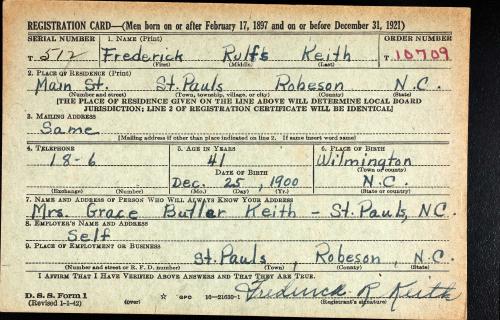 REGISTRATION CARD—(Men born on or after February 17, 1897 and on or before December 31, 1921)
SERIAL NUMBER 1. NAME (Print) ORDER NUMBER
T 512 Frederick Rulfs Keith T 10709
(First) (Middle) (Last)
2. PLACE OF RESIDENCE (Print)
Main St. St. Pauls Robeson N.C.
(Number and street) (Town, township, village, or city) (County) (State)
[THE PLACE OF RESIDENCE GIVEN ON THE LINE ABOVE WILL DETERMINE LOCAL BOARD
JURISDICTION; LINE 2 OF REGISTRATION CERTIFICATE WILL BE IDENTICAL]
3. MAILING ADDRESS
Same
[Mailing address if other than place indicated on line 2. If same insert word same]
4. TELEPHONE 5. AGE IN YEARS 6. PLACE OF BIRTH
18-6 41 Wilmington
DATE OF BIRTH (Town or county)
Dec. 25, 1900 N.C.
(Exchange) (Number) (Mo.) (Day) (Yr.) (State or country)
7. NAME AND ADDRESS OF PERSON WHO WILL ALWAYS KNOW YOUR ADDRESS
Mrs. Grace Butler Keith - St. Pauls, N.C.
8. EMPLOYER'S NAME AND ADDRESS
Self
9. PLACE OF EMPLOYMENT OR BUSINESS
St. Pauls, Robeson, N.C.
(Number and street or R. F. D. number) (Town) (County) (State)
I AFFIRM THAT I HAVE VERIFIED ABOVE ANSWERS AND THAT THEY ARE TRUE.
D. S. S. Form 1
(Revised 1-1-42) (over) ☆ GPO 16—21630-1 Frederick R Keith
(Registrant's signature)